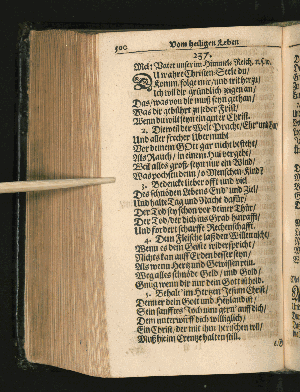 500 Vom heiligen Leben
237.
Mel: Vater unser im Himmelr. Reich, u.s.w.
DU wahre Christen-Seele du/
Komm/ folge mir/ und mit herzu/
Ich will dir gründlich zeigen an/
Das/ was von dir muß seyn gethan/
Was dir gebührt zu jeder Frist/
Wenn du willt seyn ein guter Christ.
2. Dieweil der Welt Pracht/ Ehr und
Und aller frecher Ubermuht
Vor deinem GOtt gar nicht besteht/
Als Rauch/ in einem Huy vergeht/
Weil alles groß-seyn nur ein Wind/
Was pochstu denn/ o Menschen-Kind?
3. Bedenck lieber offt und viel
Des schnöden Lebens End' und Ziel/
Und halte Tag und Nacht dafür/
Der Tod sey schon vor deiner Thür/
Der Tod/ der dich ins Grab hinrafft/
Und fordert scharffe Rechenschafft.
4. Dem Fleische laß den Willen nicht/
Wenn es dem Geiste widerspricht/
Nichts kan auff Erden besser seyn/
Als wenn Hertz und Gewissen rein.
Weg alles schnöde Geld/ und Gold/
Gnug wenn dir nur dein Gott ist hold.
5. Behalt im Hertzen Jesum Christ/
Der nur dein Gott und Heyland ist/
Sein sanfftes Joch nim gern' auff dich/
Dem unterwürff dich williglich/
Ein Christ/ der mit ihm herrschen will/
Muß hie im Creutze halten still.